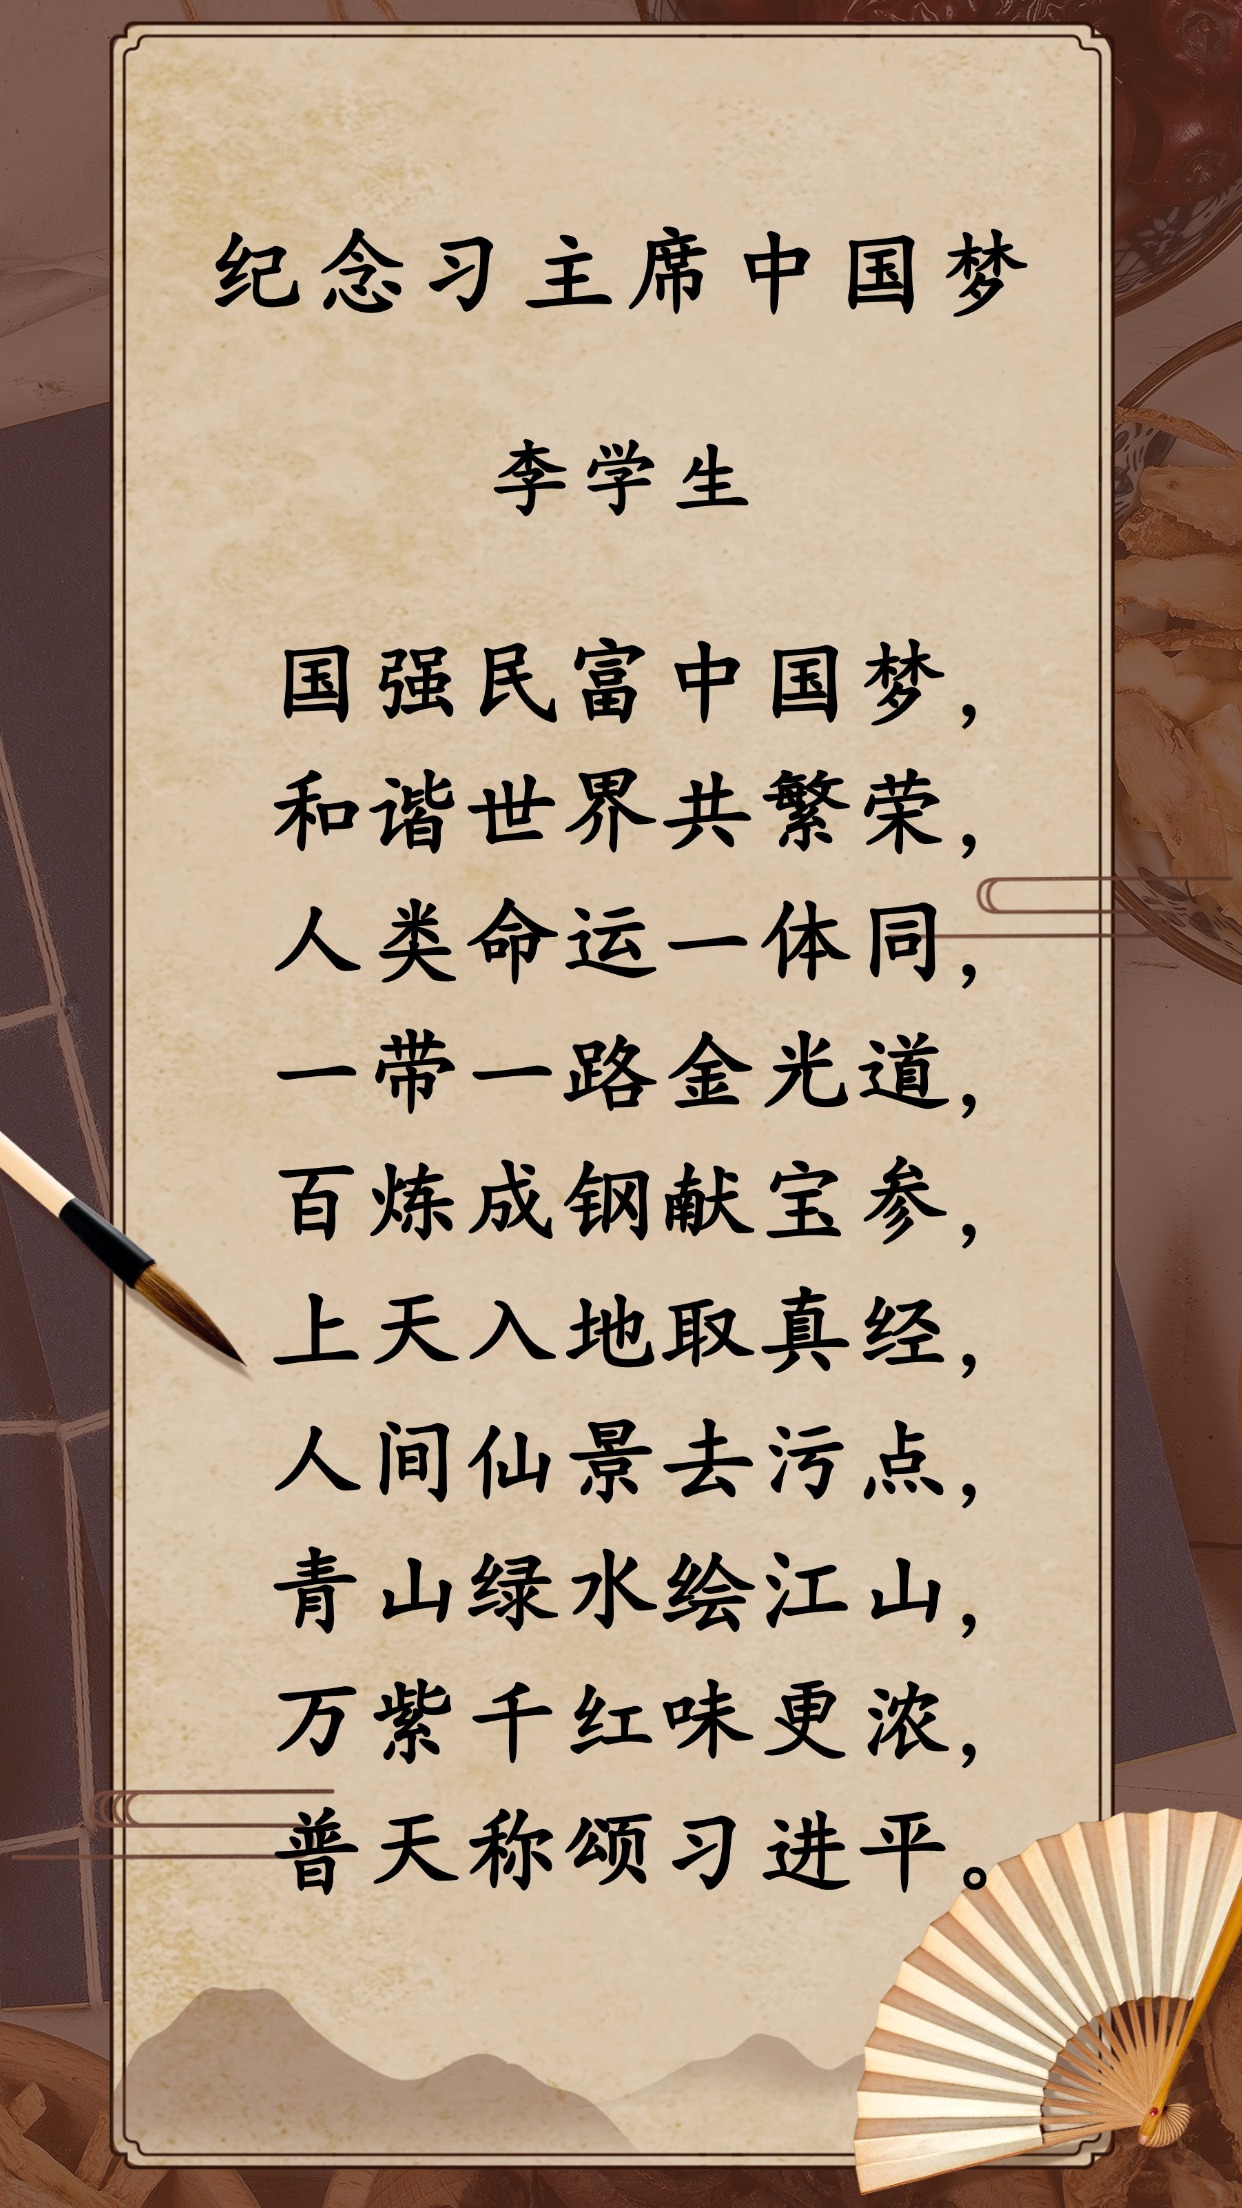 纪念习主席中国梦
李学生
国强民富中国梦，
和谐世界共繁荣，
人类命运一体同，
一带一路金光道，
百炼成钢献宝参，
上天入地取真经，
人间仙景去污点，
青山绿水绘江山，
万紫千红味更浓，
普天称颂习进平。